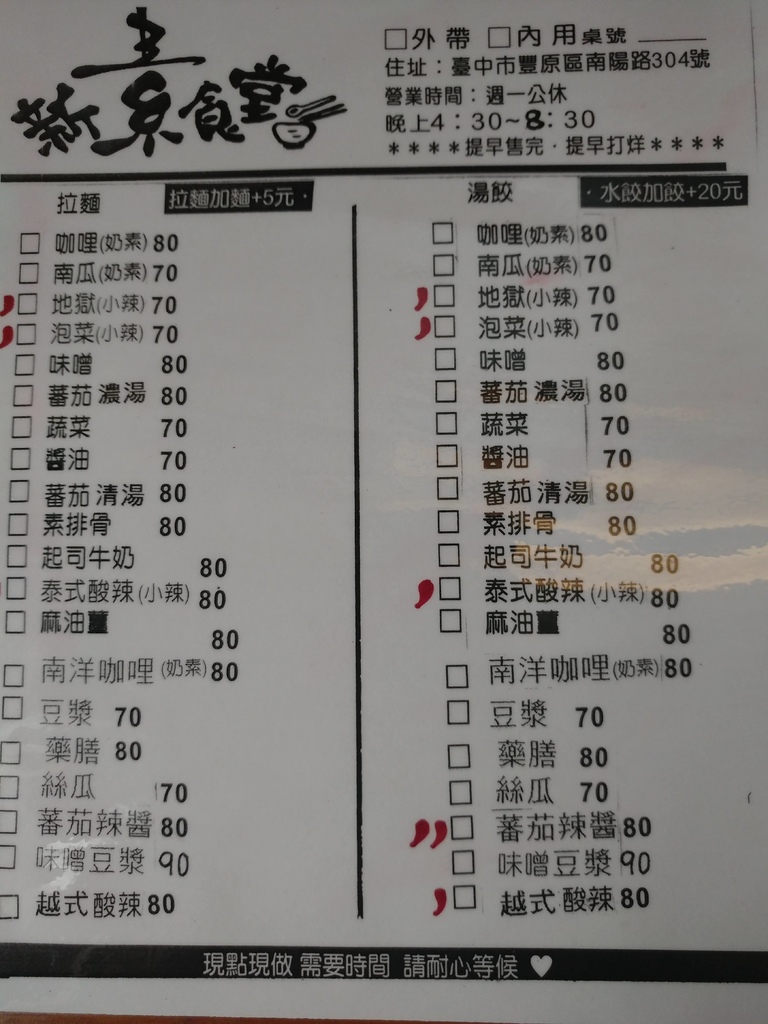 新素食堂
□外帶 □內用桌號
住址：臺中市豐原區南陽路304號
營業時間：週一公休
晚上4：30~8：30
＊＊＊＊提早售完．提早打烊＊＊＊＊
拉麵 拉麵加麵+5元．
□ 咖哩(奶素) 80
□ 南瓜(奶素) 70
□ 地獄(小辣) 70
□ 泡菜(小辣) 70
□ 味噌 80
□ 蕃茄濃湯 80
□ 蔬菜 70
□ 醬油 70
□ 蕃茄清湯 80
□ 素排骨 80
□ 起司牛奶 80
□ 泰式酸辣(小辣) 80
□ 麻油薑 80
□ 南洋咖哩(奶素) 80
□ 豆漿 70
□ 藥膳 80
□ 絲瓜 70
□ 蕃茄辣醬 80
□ 味噌豆漿 90
□ 越式酸辣 80
湯餃 ．水餃加餃+20元
□ 咖哩(奶素) 80
□ 南瓜(奶素) 70
□ 地獄(小辣) 70
□ 泡菜(小辣) 70
□ 味噌 80
□ 蕃茄濃湯 80
□ 蔬菜 70
□ 醬油 70
□ 蕃茄清湯 80
□ 素排骨 80
□ 起司牛奶 80
□ 泰式酸辣(小辣) 80
□ 麻油薑 80
□ 南洋咖哩(奶素) 80
□ 豆漿 70
□ 藥膳 80
□ 絲瓜 70
□ 蕃茄辣醬 80
□ 味噌豆漿 90
□ 越式酸辣 80
現點現做 需要時間 請耐心等候 ♥